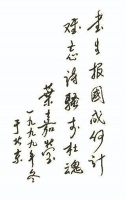 书生报国成何计
难忘诗骚李杜魂
葉嘉莹
一九九九年冬
于北京